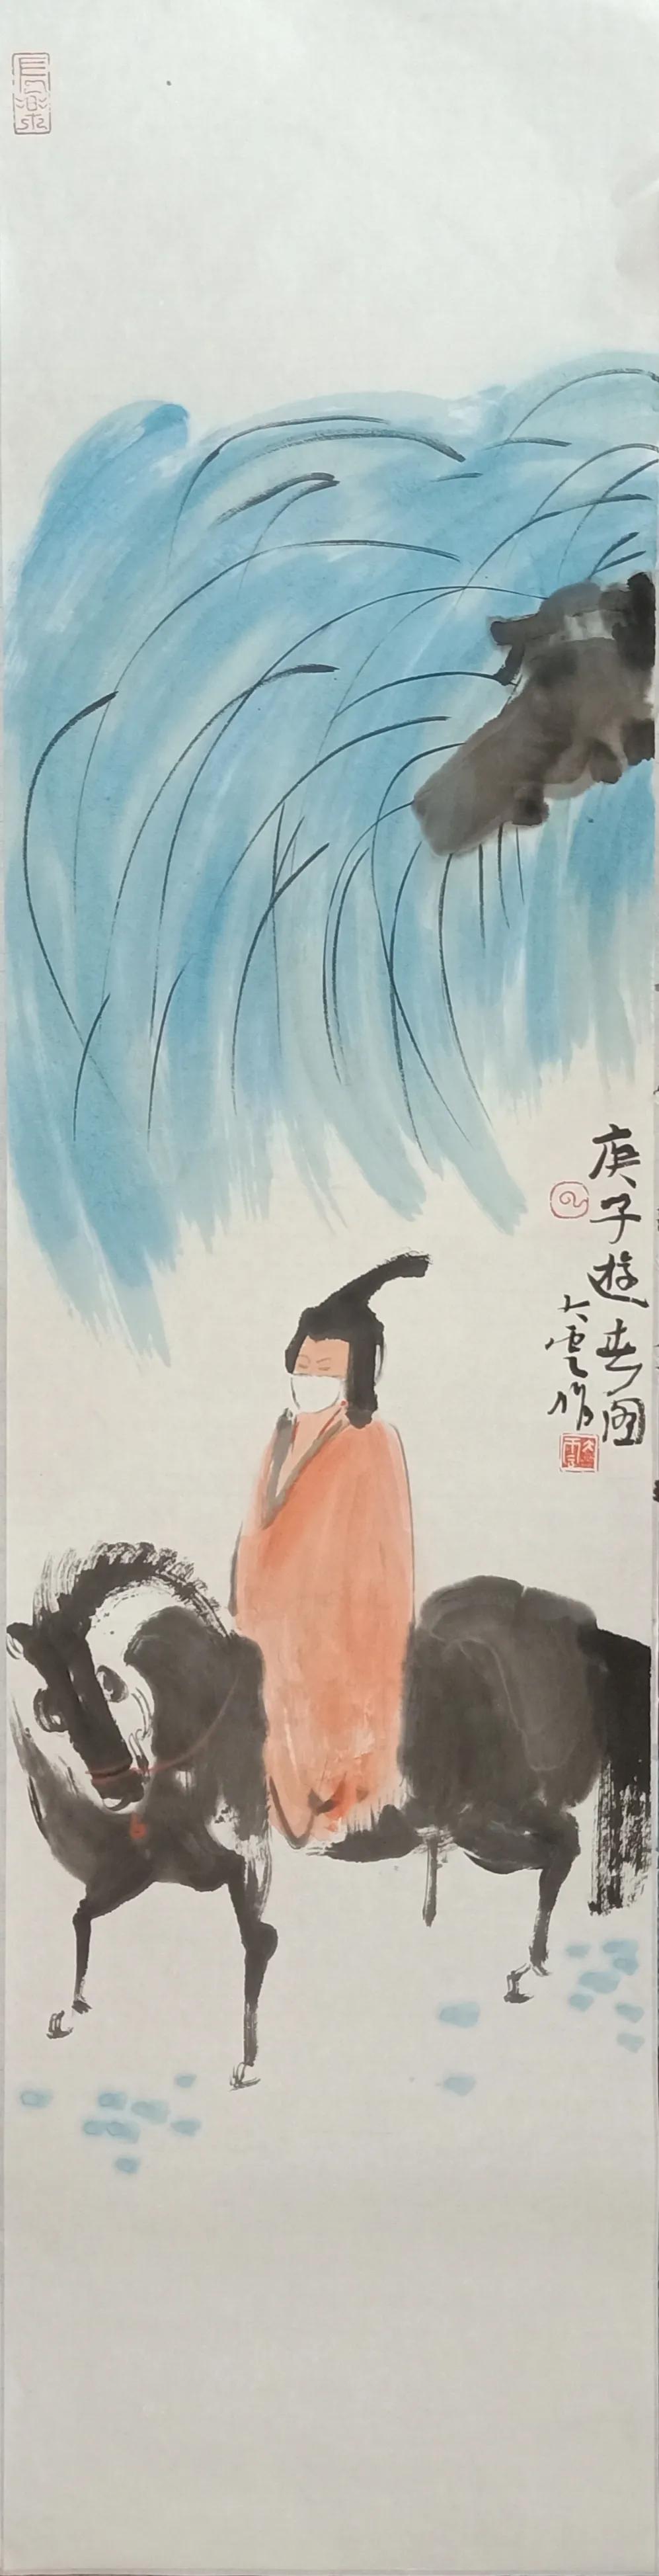 庚子遊春图
大雲作
長樂